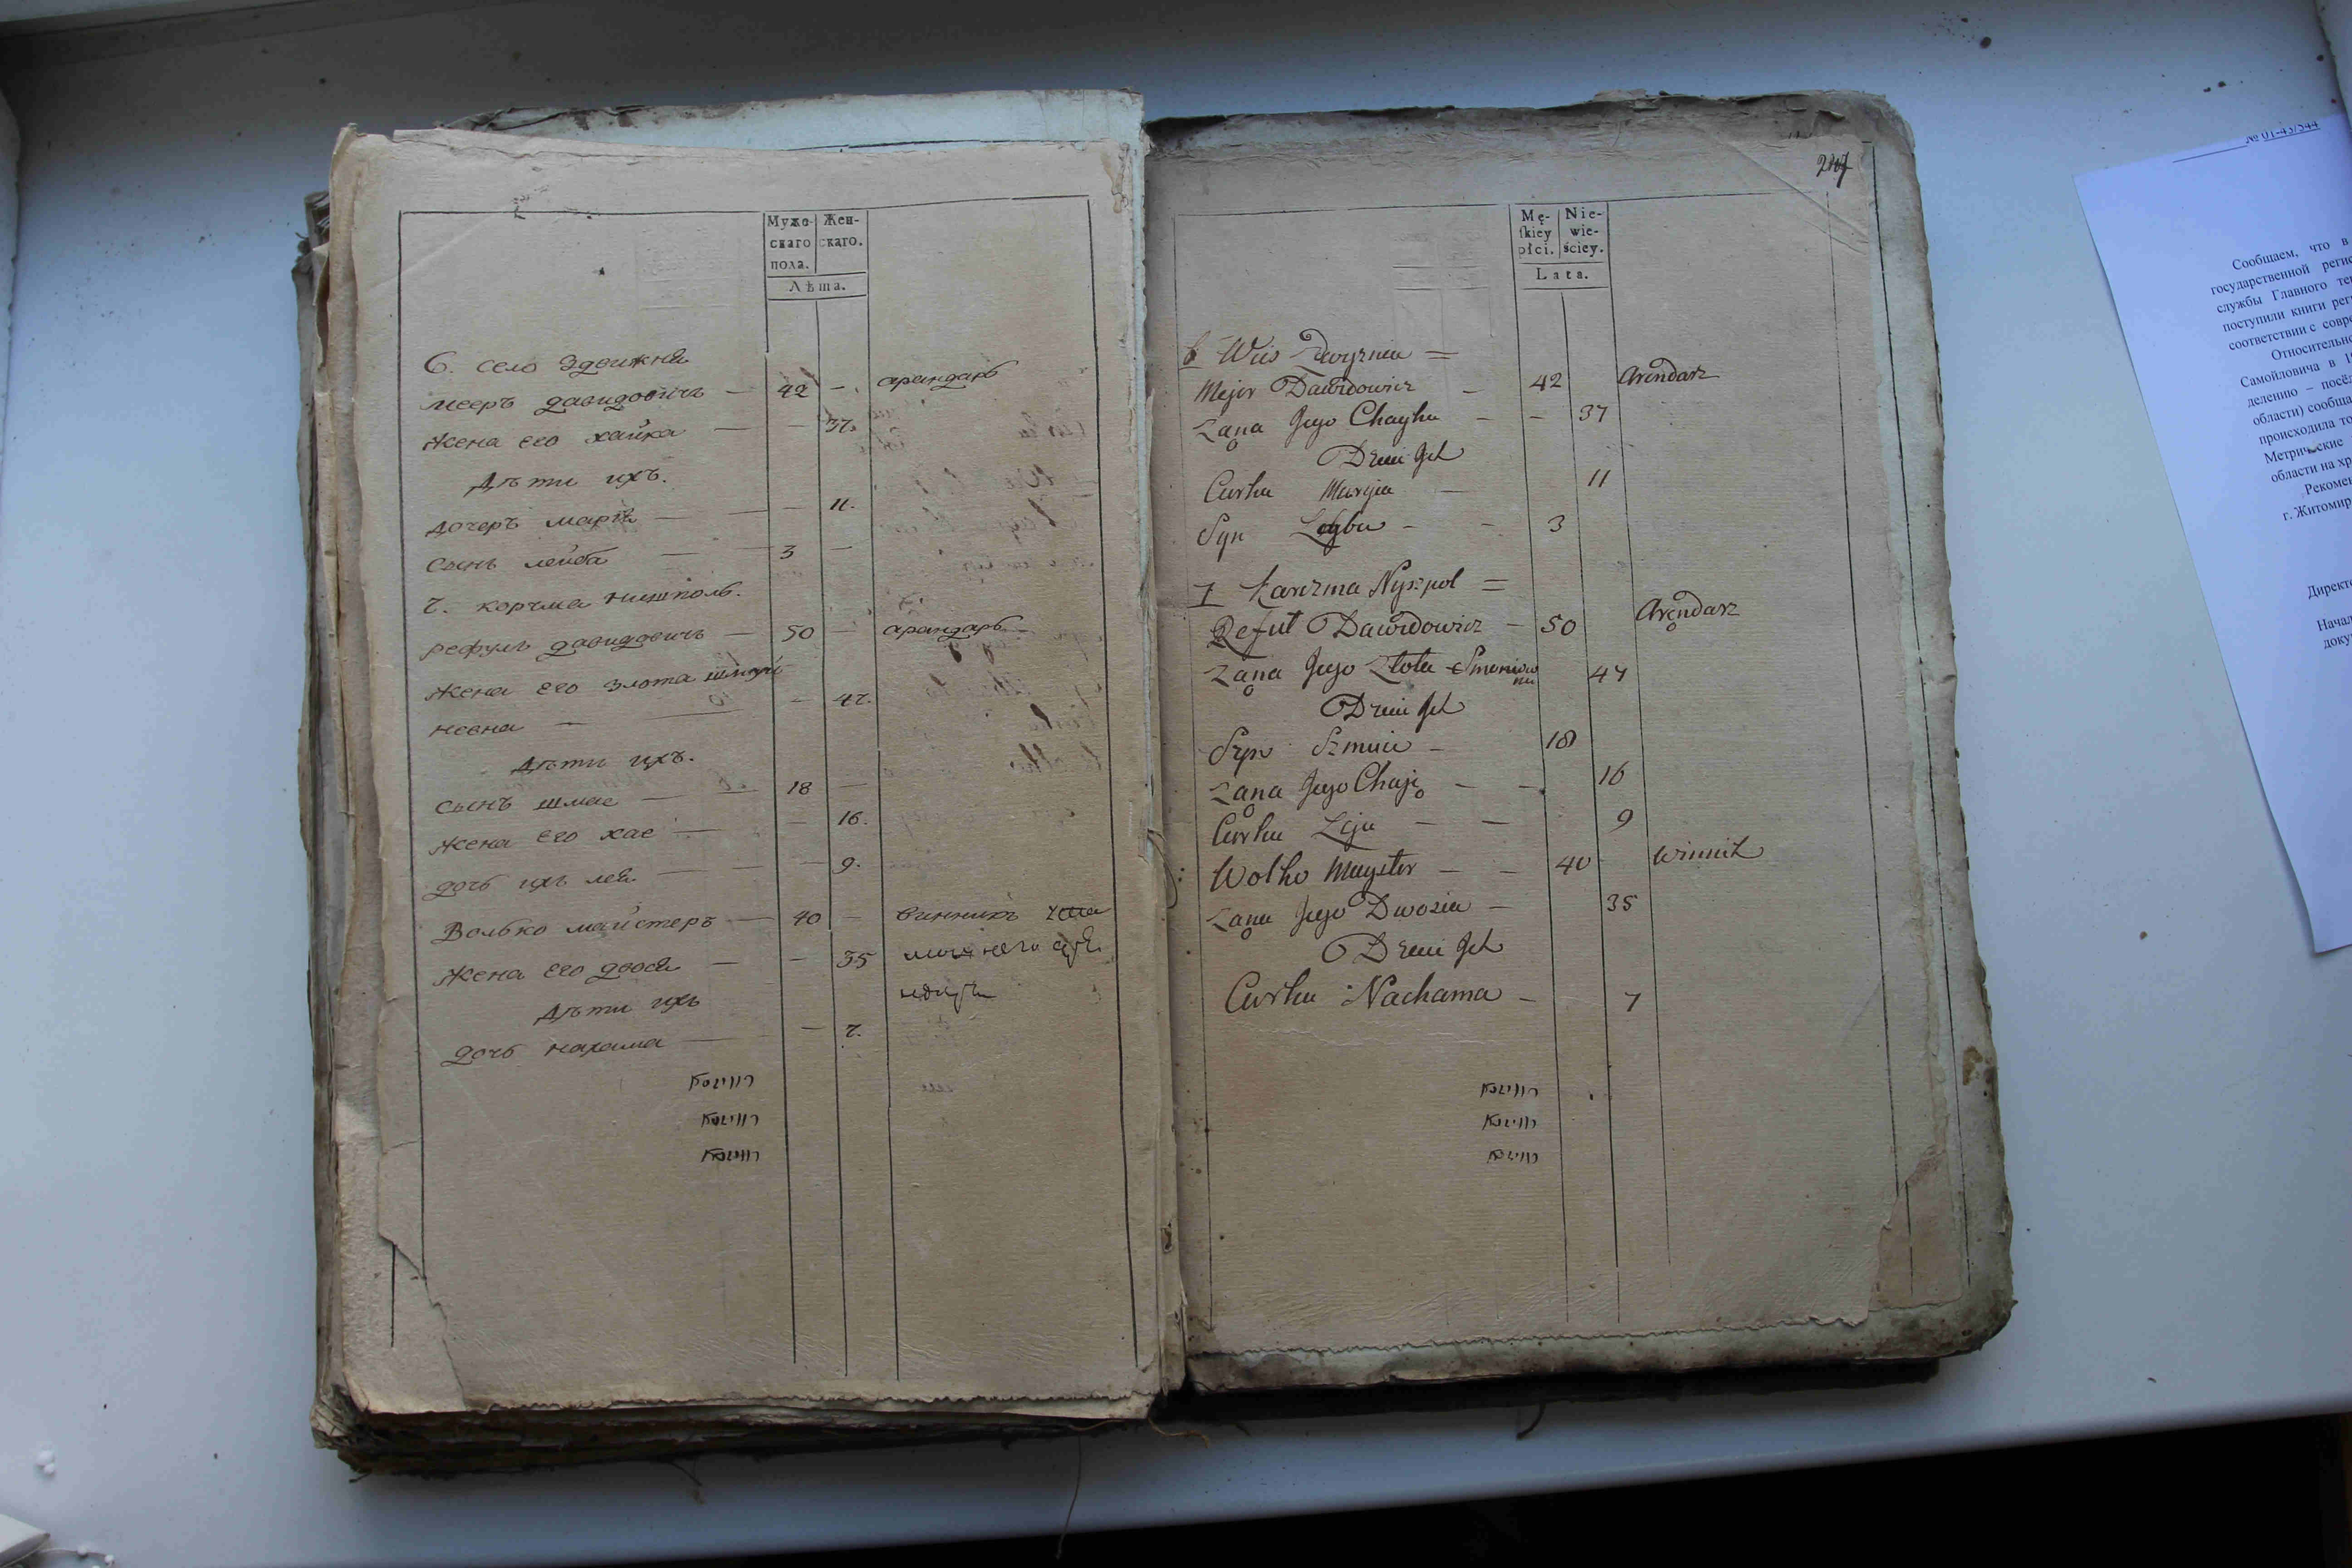 Муже-
скаго
пола.
Жен-
скаго.
Лѣта.
6. село Здвижня
меерь давидовичъ — 42 — арандарь
жена его хайка — — 37.
дѣти ихъ.
дочеръ марія — — 11.
сынъ лейба — 3 —
7. корчма нишполь.
рефулъ давидовичъ — 50 — арандарь
жена его злота шмой
невна — — 47.
дѣти ихъ.
сынъ шмае — 18 —
жена его хае — — 16.
дочь ихъ лея — — 9.
Волько майстеръ — 40 — винникъ
жена его двося — — 35
дѣти ихъ
дочь нахама — — 7.
247
Mę-
ſkiey
płci.
Nie-
wie-
ściey.
Lata.
6 Wieś Zdwyżnia =
Mejer Dawidowicz — 42 Arendarz
Żąna Jego Chayka — — 37
Dzieci Ich
Curka Maryia — 11
Syn Leyba — — 3
7 Karczma Nyszpol =
Refuł Dawidowicz — 50 Aręndarz
Żąna Jego Złota Smoniow
na 47
Dzieci Ich
Syn Szmuie — 18
Żąna Jego Chaję — — 16
Curka Leja — — 9
Wolko Mayster — — 40 winnik
Żąna Jego Dwosia — 35
Dzieci Ich
Curka Nachama — 7
№ 01-43/544
Сообщаем, что в
государственной
службы Главного
поступили книги
соответствии с
Относительно
Самойловича в
делению – посёл
области) сообща
происходила
Метрические
области на хр
Рекомен
г. Житомир
Директ
Начал
доку